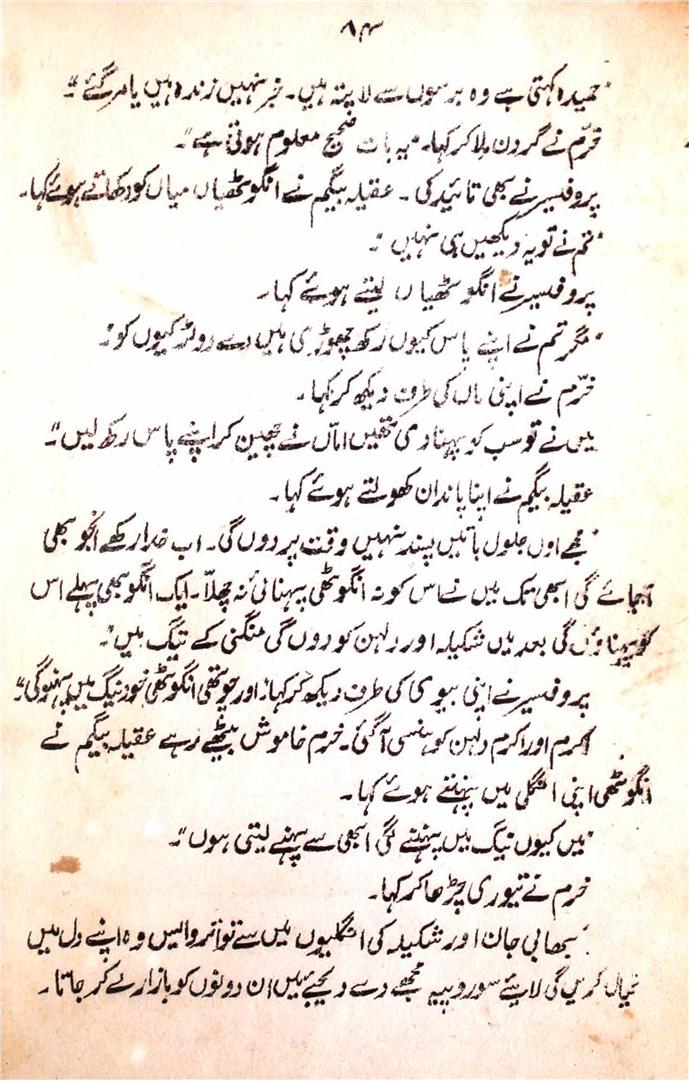 ۸۴
"حمیدہ کہتی ہے وہ برسوں سے لاپتہ ہیں۔ خبر نہیں زندہ ہیں یا مر گئے"۔
خرّم نے گردن ہلا کر کہا۔ "یہ بات صحیح معلوم ہوتی ہے"۔
پروفیسر نے بھی تائید کی۔ عقیلہ بیگم نے انگوٹھیاں میاں کو دکھاتے ہوئے کہا۔
"تم نے تو یہ دیکھیں ہی نہیں"۔
پروفیسر نے انگوٹھیاں لیتے ہوئے کہا۔
"مگر تم نے اپنے پاس کیوں رکھ چھوڑی ہیں دے دو لڑکیوں کو"۔
خرّم نے اپنی ماں کی طرف دیکھ کر کہا۔
میں نے تو سب کو پہنا دی تھیں امّاں نے چھین کر اپنے پاس رکھ لیں"۔
عقیلہ بیگم نے اپنا پاندان کھولتے ہوئے کہا۔
"مجھے اول جلول باتیں پسند نہیں وقت پر دوں گی۔ اب خدا رکھے انجو بھی
آجائے گی ابھی تک میں نے اس کو نہ انگوٹھی پہنائی نہ چھلّا۔ ایک انگوٹھی پہلے اس
کو پہناؤں گی بعد میں شکیلہ اور دلہن کو دوں گی منگنی کے نیگ میں"۔
پروفیسر نے اپنی بیوی کی طرف دیکھ کر کہا "اور چوتھی انگوٹھی خود نیگ میں پہنوگی"۔
اکرم اور اکرم دلہن کو ہنسی آگئی۔ خرم خاموش بیٹھے رہے عقیلہ بیگم نے
انگوٹھی اپنی انگلی میں پہنتے ہوئے کہا۔
"میں کیوں نیگ میں پہننے لگی ابھی سے پہنے لیتی ہوں"۔
خرم نے تیوری چڑھا کر کہا۔
"بھابی جان اور شکیلہ کی انگلیوں میں سے تو اتروالیں وہ اپنے دل میں
خیال کریں گی لایئے سو روپیہ مجھے دے دیجئے میں ان دونوں کو بازار لے کر جاتا۔